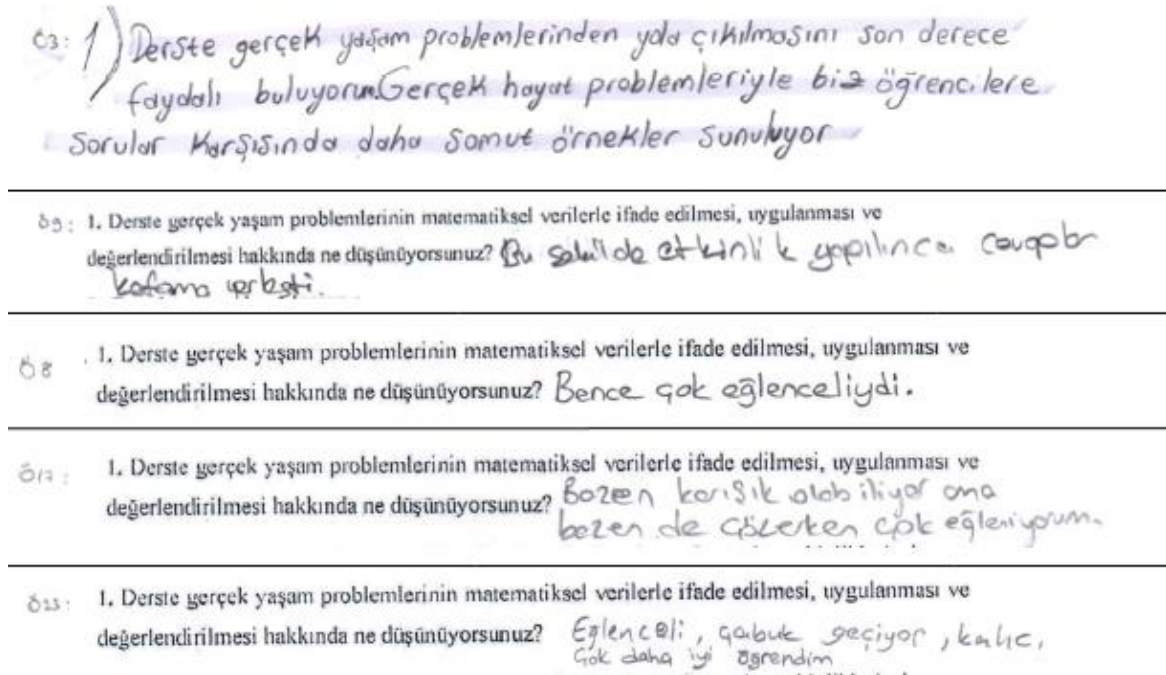 Ö3: 1) Derste gerçek yaşam problemlerinden yola çıkılmasını son derece
faydalı buluyorum.Gerçek hayat problemleriyle biz öğrencilere
Sorular karşısında daha somut örnekler sunuluyor
Ö9: 1. Derste gerçek yaşam problemlerinin matematiksel verilerle ifade edilmesi, uygulanması ve
değerlendirilmesi hakkında ne düşünüyorsunuz? Bu şekilde etkinlik yapılınca cevaplar
kafama yerleşti.
Ö8 1. Derste gerçek yaşam problemlerinin matematiksel verilerle ifade edilmesi, uygulanması ve
değerlendirilmesi hakkında ne düşünüyorsunuz? Bence çok eğlenceliydi.
Ö17: 1. Derste gerçek yaşam problemlerinin matematiksel verilerle ifade edilmesi, uygulanması ve
değerlendirilmesi hakkında ne düşünüyorsunuz? Bazen karışık olabiliyor ama
bazen de çözerken çok eğleniyorum.
Ö23: 1. Derste gerçek yaşam problemlerinin matematiksel verilerle ifade edilmesi, uygulanması ve
değerlendirilmesi hakkında ne düşünüyorsunuz? Eğlenceli, çabuk geçiyor, kalıcı,
Çok daha iyi öğrendim